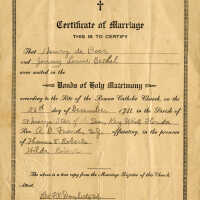 Certificate of Marriage
THIS IS TO CERTIFY
That Henry de Boer
and Jenny Louise Bethel
were united in the
Bonds of Holy Matrimony
according to the Rite of the Roman Catholic Church, on the
26th day of December 1911 in the Parish of
St Mary Star of the Sea, Key West, Florida
Rev. A. B. S.J. officiating, in the presence
of Thomas E. Roberts
Hilda
The above is a true copy from the Marriage Register of this Church.
Attest